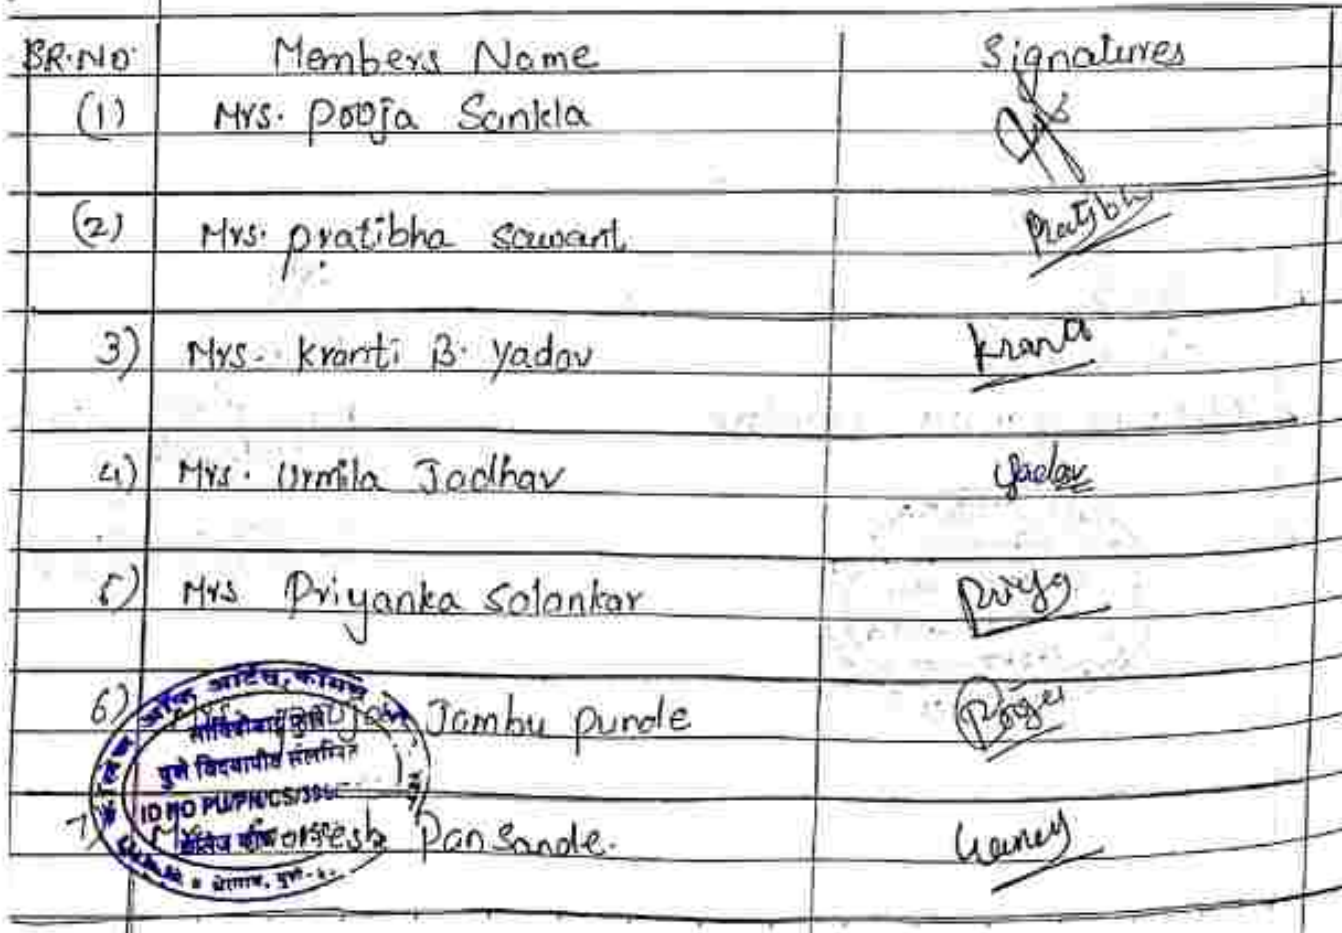 SR.NO Members Name Signatures
(1) Mrs. Pooja Sankla
(2) Mrs. pratibha sawant Pratibh
3) Mrs. Kranti B. Yadav Kranti
4) Mrs. Urmila Jadhav Yadav
5) Mrs Priyanka Solankar Priya
6) Jambu punde
7) Pansande.
ऑफ आर्टस, कॉमर्स
सावित्रीबाई फुले
पुणे विदयापीठ संलग्नित
ID NO PU/PN/CS/
कॉलेज कोड